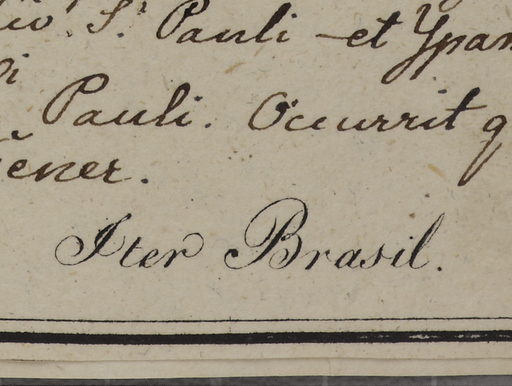 S. Pauli et Ypan
Pauli. Occurrit q
ener.
Iter Brasil.